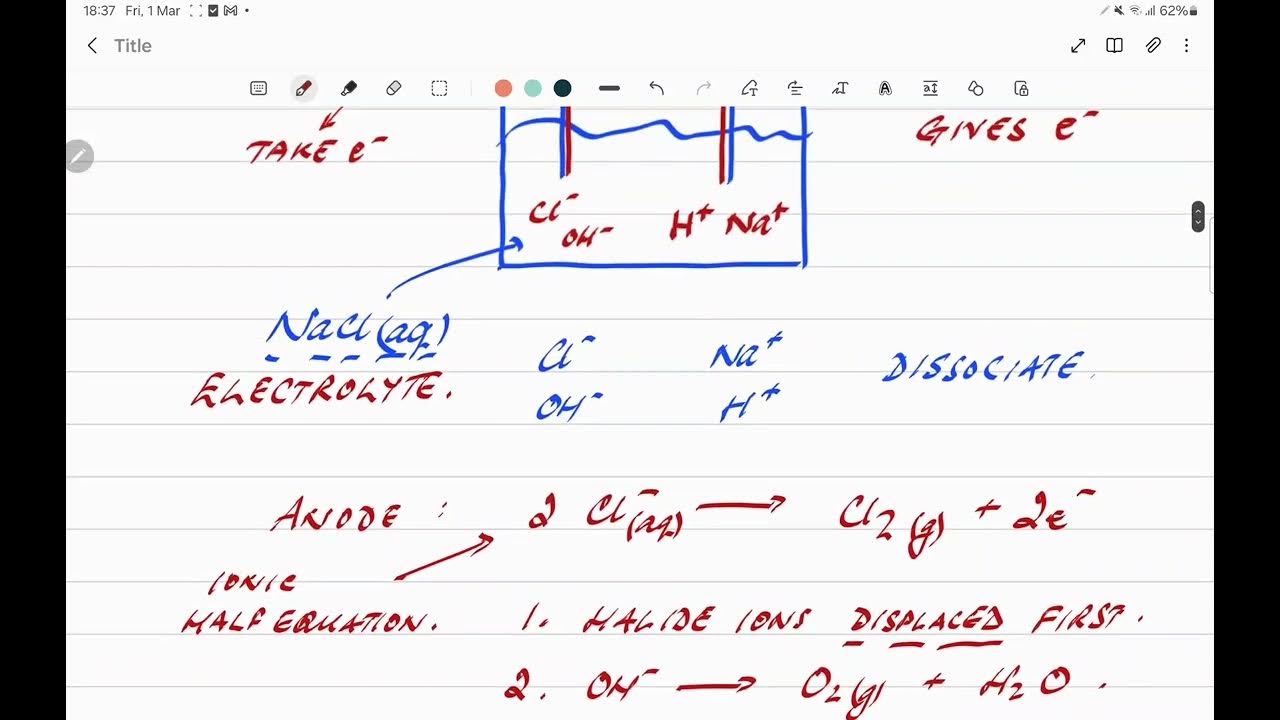 18:37 Fri, 1 Mar
62%
Title
TAKE e⁻
GIVES e⁻
Cl⁻
OH⁻
H⁺ Na⁺
NaCl(aq)
ELECTROLYTE.
Cl⁻ Na⁺
OH⁻ H⁺
DISSOCIATE.
ANODE : 2 Cl⁻(aq) → Cl₂(g) + 2e⁻
IONIC
HALF EQUATION.
1. HALIDE IONS DISPLACED FIRST.
2. OH⁻ → O₂(g) + H₂O.